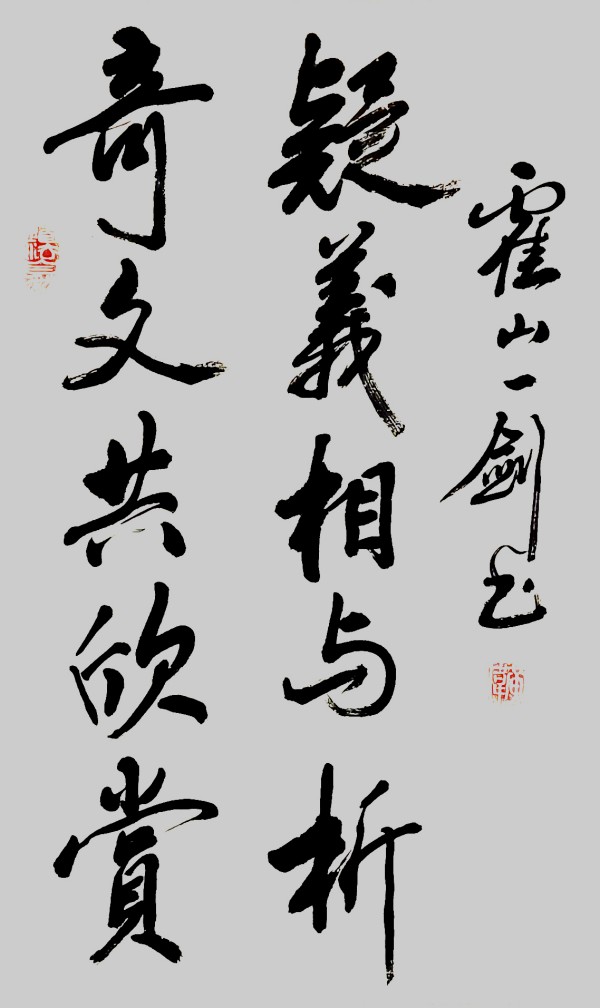 奇文共欣赏
疑義相与析
霍山一剑书